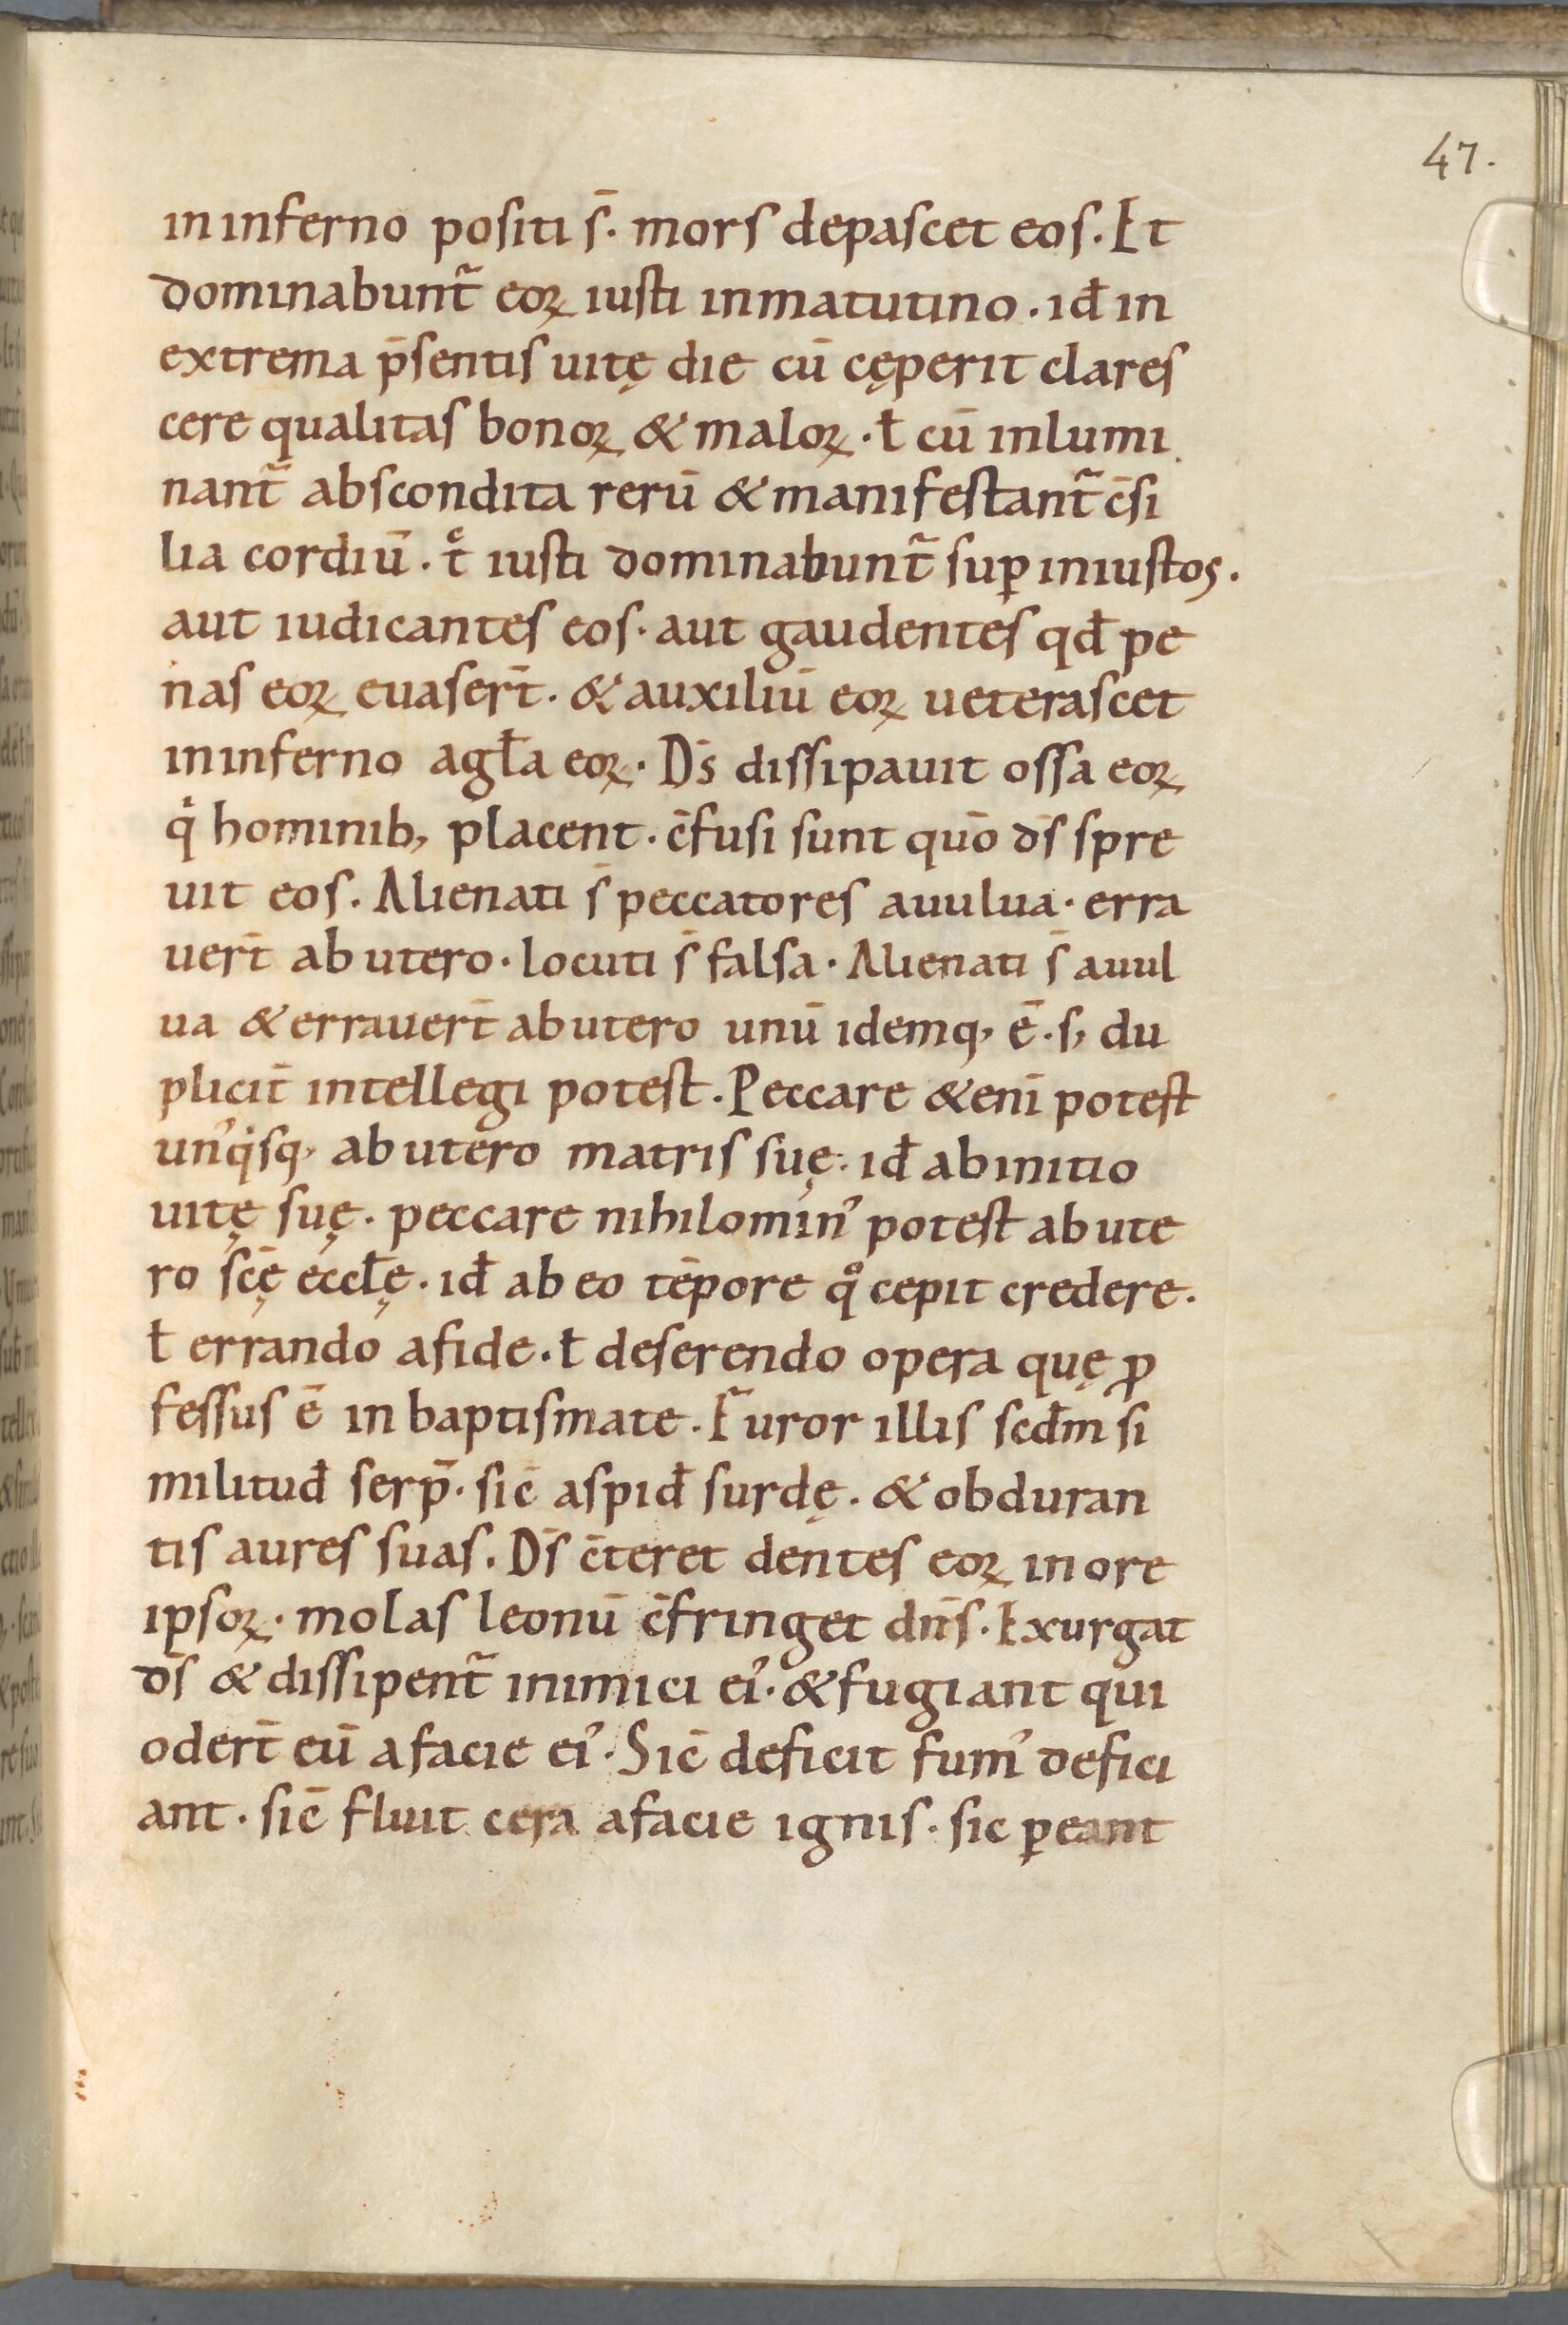 47.
in inferno positi s̄. mors depascet eos. Et
dominabunt̃ eoꝝ iusti inmatutino. id̄ in
extrema p̄sentis uitę die cū cęperit clares
cere qualitas bonoꝝ & maloꝝ. ł cū inlumi
nant̃ abscondita rerū & manifestant̃ c̄si
lia cordiū. tͨ iusti dominabunt̃ suꝑ iniustos.
aut iudicantes eos. aut gaudentes qd̄ pe
nas eoꝝ euaser̄t. & auxiliū eoꝝ ueterascet
ininferno agła eoꝝ. D̄s dissipauit ossa eoꝝ
qͥ hominib; placent. c̄fusi sunt quō d̄s spre
uit eos. Alienati s̄ peccatores auulua. erra
uer̄t ab utero. locuti s̄ falsa. Alienati s̄ auul
ua & errauer̄t abutero unū idemq; ē. s; du
plicit̄ intellegi potest. Peccare &enī potest
unꝰqͥsq; abutero matris suę. id̄ abinitio
uitę suę. peccare nihilominꝰ potest abute
ro sc̄ę ecclę̄. id̄ ab eo tēpore qͦ cepit credere.
ł errando afide. ł deserendo opera quę ꝓ
fessus ē in baptismate. Furor illis scd̄m si
militud̄ serp̄. sic̄ aspid̄ surdę. & obduran
tis aures suas. D̄s c̄teret dentes eoꝝ in ore
ipsoꝝ. molas leonū c̄fringet dn̄s. Exurgat
d̄s & dissipent̃ inimici eiꝰ. & fugiant qui
oder̄t eū afacie eiꝰ. Sic̄ deficit fumꝰ defici
ant. sic̄ fluit cera afacie ignis. sic ꝑeant